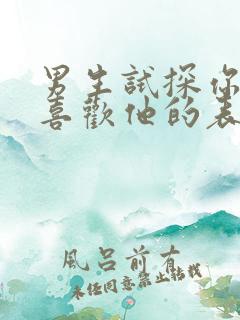 男生試探你
喜歡他的表
風呂前有
未经同意禁止转载